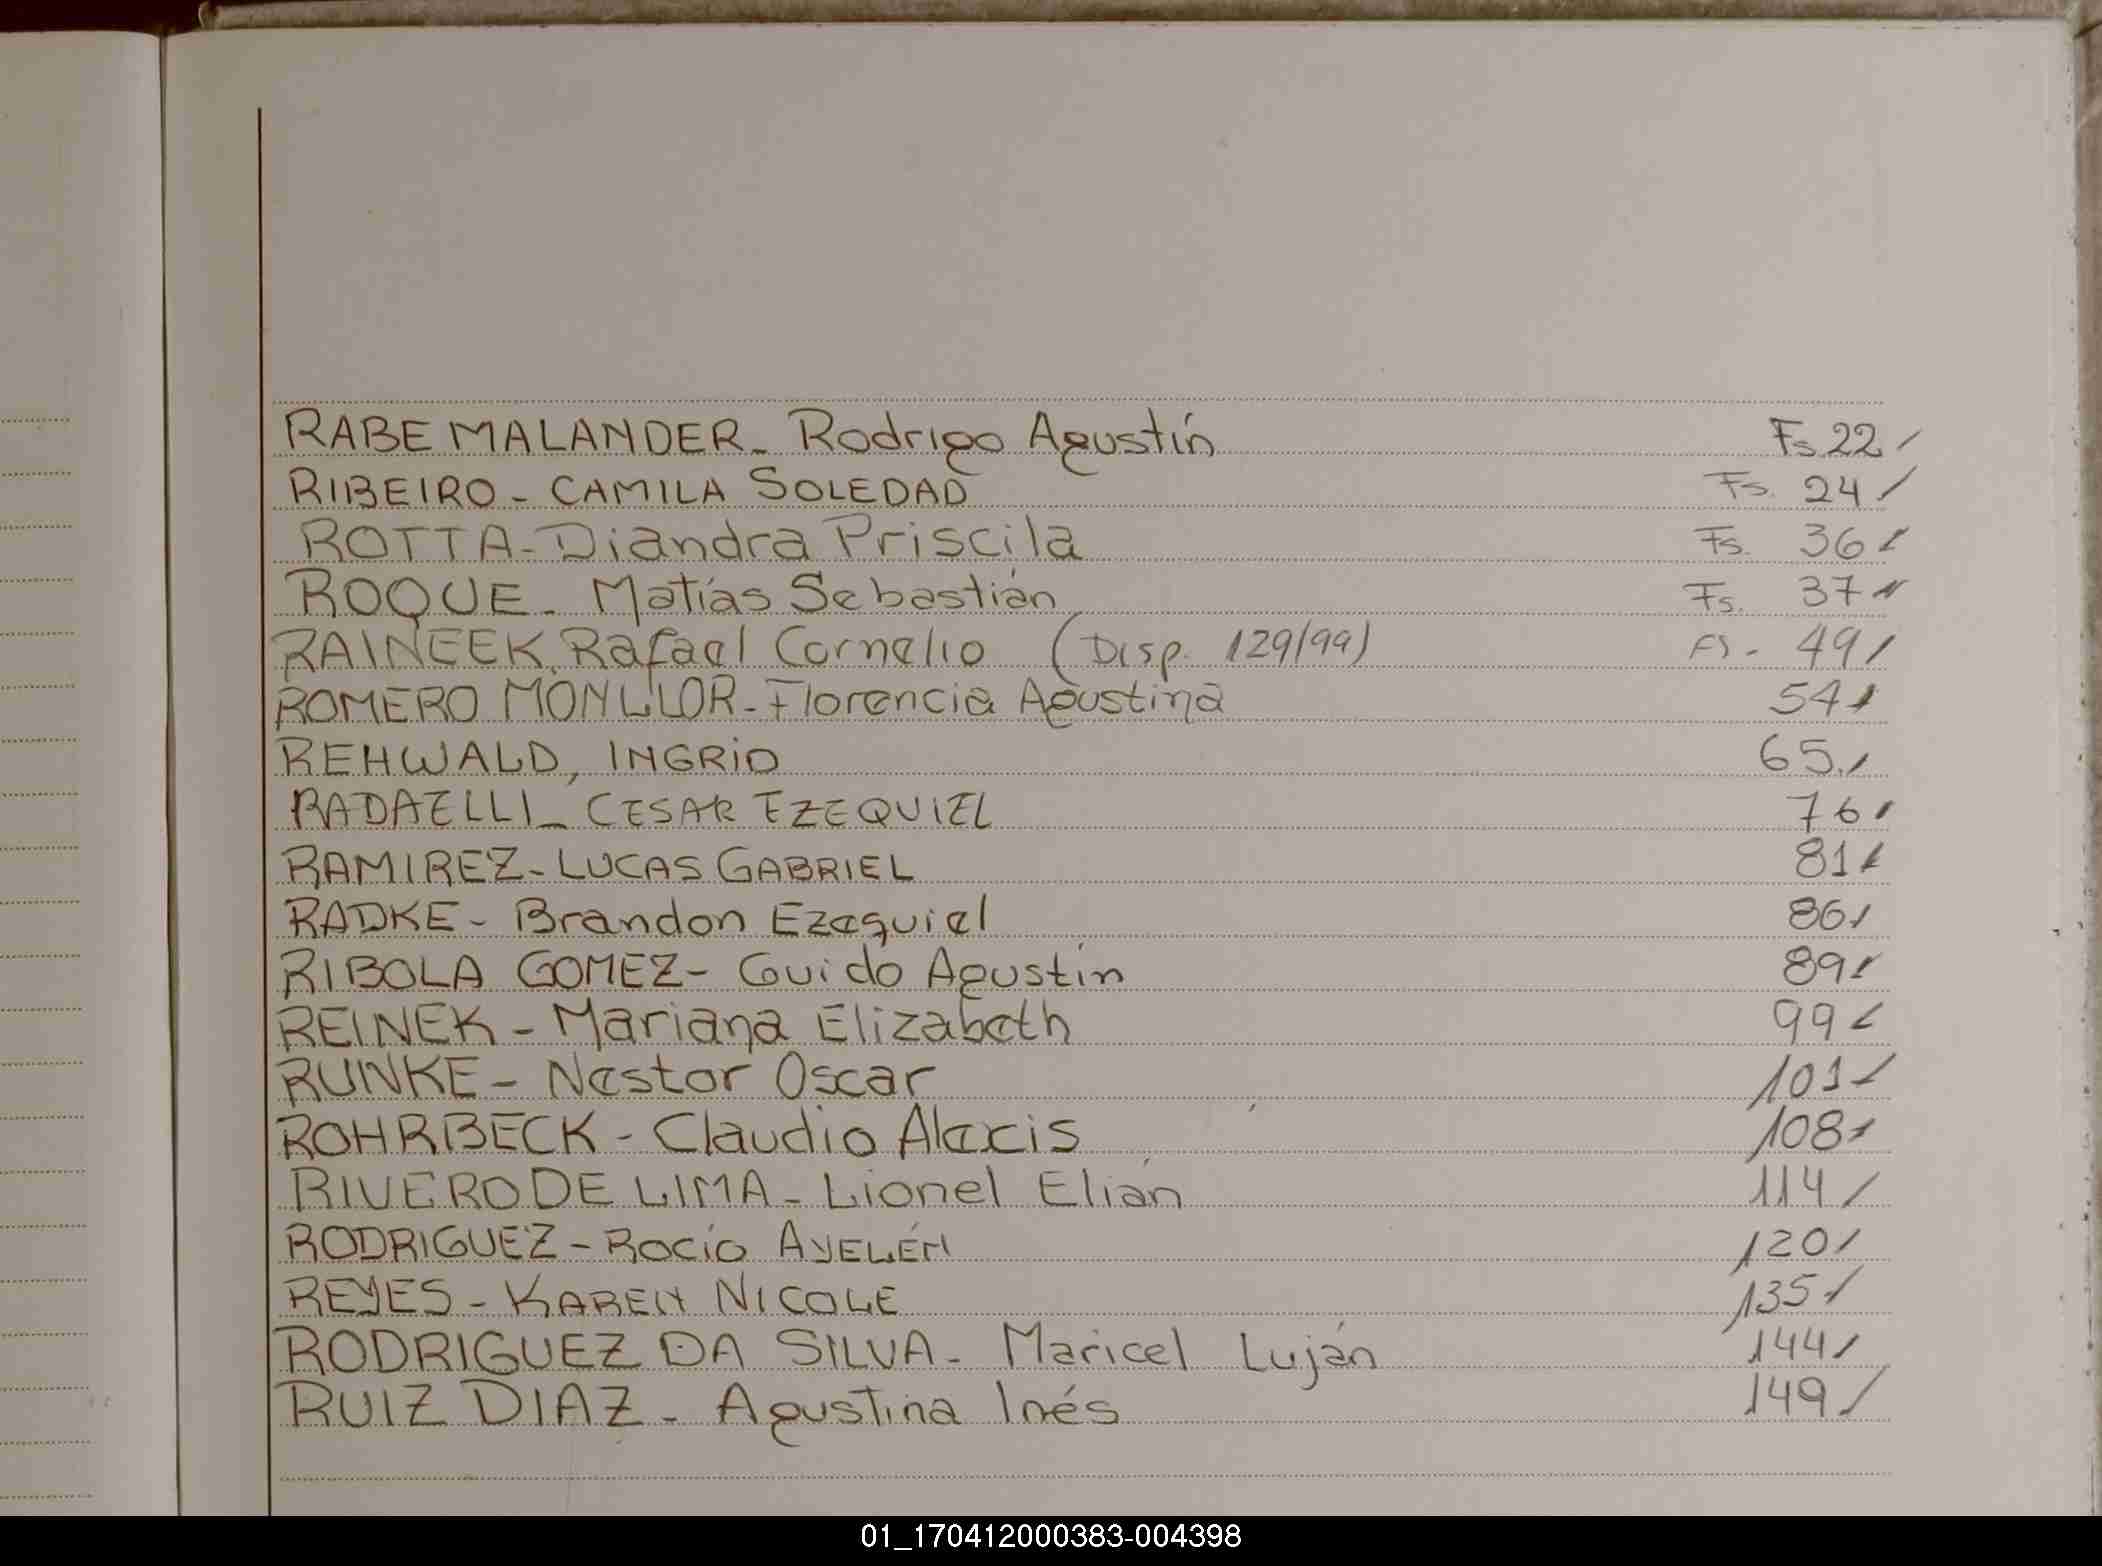 RABE MALANDER_ Rodrigo Agustín Fs. 22
RIBEIRO - CAMILA SOLEDAD Fs. 24
ROTTA - Diandra Priscila Fs. 36
ROQUE - Matías Sebastián Fs. 37
RAINEEK, Rafael Cornelio (Disp. 129/99) Fs - 49
ROMERO MONLLOR - Florencia Agustina 54
REHWALD, INGRID 65
RADAELLI_ CESAR EZEQUIEL 76
RAMIREZ - LUCAS GABRIEL 81
RADKE - Brandon Ezequiel 86
RIBOLA GOMEZ - Guido Agustín 89
REINEK - Mariana Elizabeth 99
RUNKE - Nestor Oscar 101
ROHRBECK - Claudio Alexis 108
RIVERO DE LIMA - Lionel Elián 114
RODRIGUEZ - Rocío AYELÉN 120
REYES - KAREN NICOLE 135
RODRIGUEZ DA SILVA - Maricel Luján 144
RUIZ DIAZ - Agustina Inés 149
01_170412000383-004398